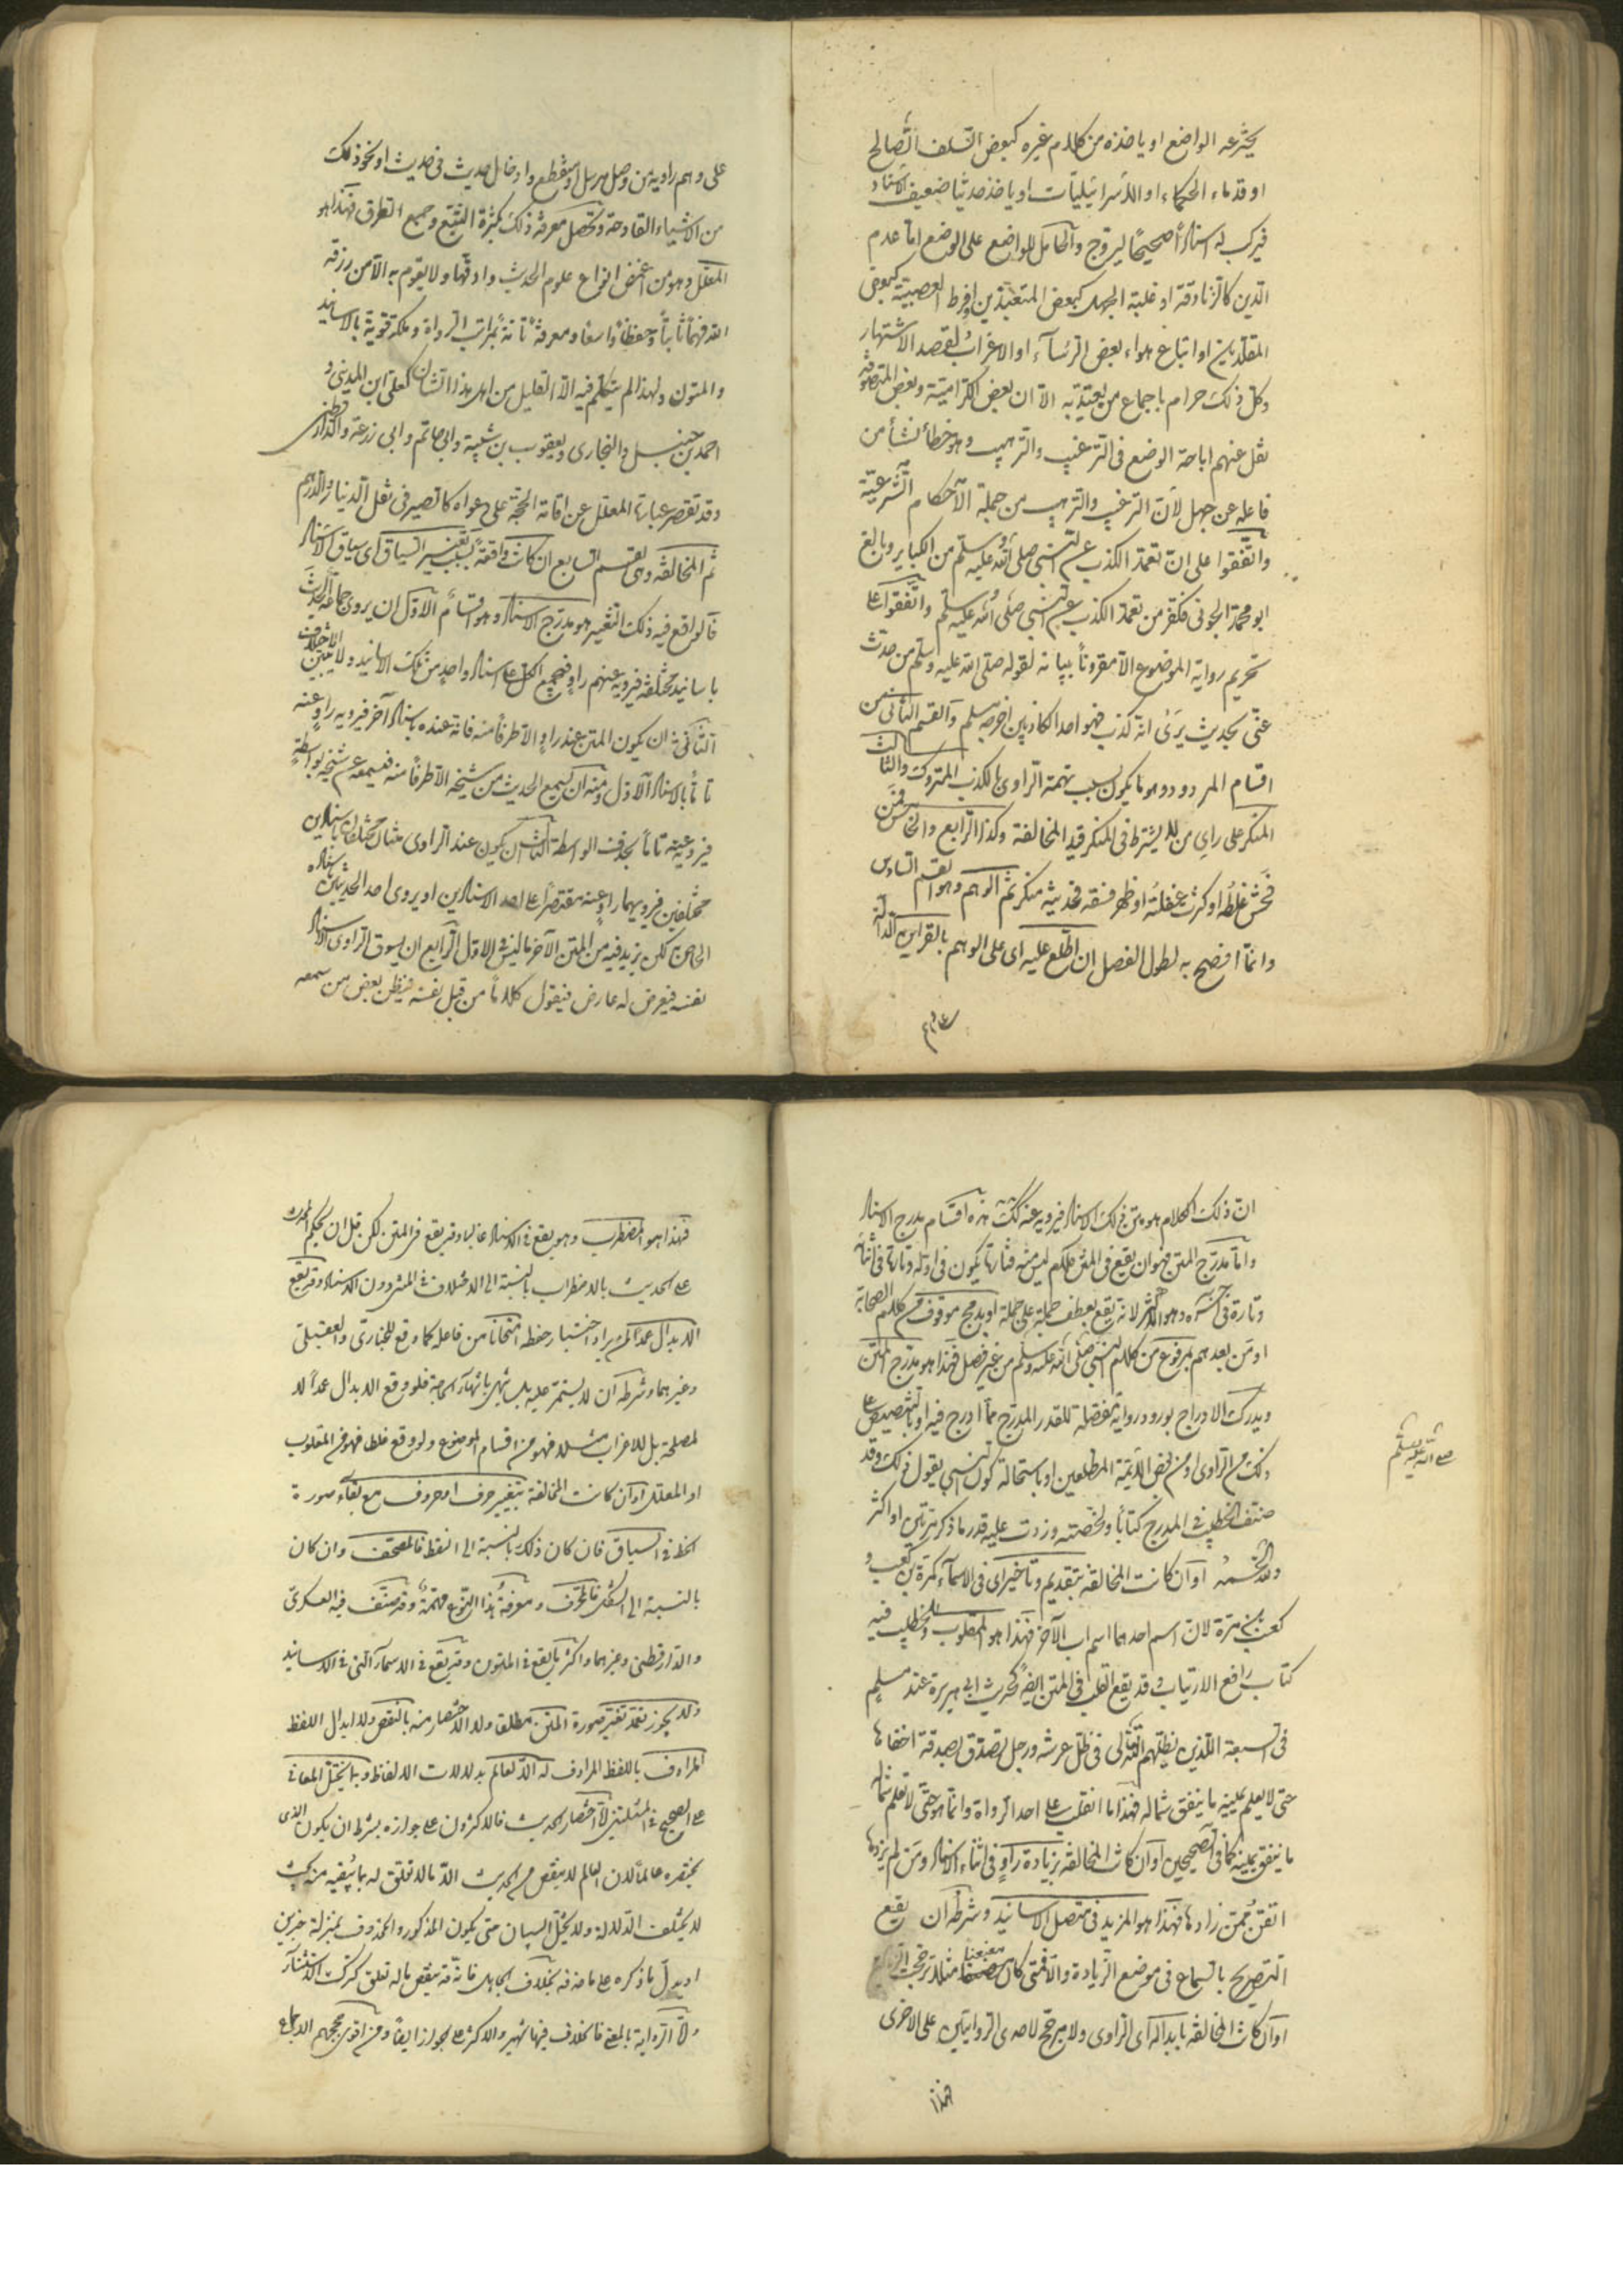 يخترعه الواضع او ياخذه من كلام غيره كبعض السلف الصالح
او قدماء الحكماء او الاسرائيليات او ياخذ حديثا ضعيف الاسناد
فيركب له اسنادا صحيحا ليروج والحامل للواضع على الوضع اما عدم
الدين كالزنادقة او غلبة الجهل كبعض المتعبدين او فرط العصبية كبعض
المقلدين او اتباع هواء بعض الرؤسآء او الاغراب لقصد الاشتهار
وكل ذلك حرام باجماع من يعتد به الا ان بعض الكرامية وبعض المتصوفة
نقل عنهم اباحة الوضع فى الترغيب والترهيب وهو خطأ نشأ من
فاعله عن جهل لان الترغيب والترهيب من جملة الاحكام الشرعية
واتفقوا على ان تعمد الكذب على النبى صلى الله عليه وسلم من الكباير وبالغ
ابو محمد الجونى فكفر من تعمد الكذب على النبى صلى الله عليه وسلم واتفقوا على
تحريم رواية الموضوع الا مقرونا ببيانه لقوله صلى الله عليه وسلم من حدث
عنى بحديث يرى انه كذب فهو احد الكاذبين اخرجه مسلم والقسم الثانى من
اقسام المردود وهو ما يكون بسبب تهمة الراوى بالكذب المتروك والثالث
المنكر على راى من لا يشترط فى المنكر قيد المخالفة وكذا الرابع والخامس فمن
فحش غلطه او كثرت غفلته او ظهر فسقه فحديثه منكر ثم الوهم وهو القسم السادس
وانما افصح به لطول الفصل ان اطلع عليه اى على الوهم بالقراين الدالة
على وهم راويه من وصل مرسل او منقطع وادخال حديث فى حديث او نحو ذلك
من الاشياء القادحة وتحصل معرفة ذلك بكثرة التتبع وجمع الطرق فهذا هو
المعلل وهو من اغمض انواع علوم الحديث وادقها ولا يقوم به الا من رزقه
الله فهما ثاقبا وحفظا واسعا ومعرفة تامة بمراتب الرواة وملكة قوية بالاسانيد
والمتون ولهذا لم يتكلم فيه الا القليل من اهل هذا الشان كعلى ابن المدينى و
احمد بن حنبل والبخارى ويعقوب بن شيبة وابى حاتم وابى زرعة والدارقطنى
وقد تقصر عبارة المعلل عن اقامة الحجة على دعواه كالصيرفى فى نقل الدينار والدرهم
ثم المخالفة وهى القسم السابع ان كانت واقعة بسبب تغيير السياق اى سياق الاسناد
فالواقع فيه ذلك التغيير هو مدرج الاسناد وهو اقسام الاول ان يروى جماعة الحديث
باسانيد مختلفة فيرويه عنهم راو فيجمع الكل على اسناد واحد من تلك الاسانيد ولا يبين الاختلاف
الثانى ان يكون المتن عند راو الا طرفا منه فانه عنده باسناد آخر فيرويه راو عنه
تاما بالاسناد الاول ومنه ان يسمع الحديث من شيخه الا طرفا منه فيسمعه عن شيخه بواسطة
فيرويه عنه تاما بحذف الواسطة الثالث ان يكون عند الراوى متنان مختلفان باسنادين
مختلفين فيرويهما راو عنه مقتصرا على احد الاسنادين او يروى احد الحديثين باسناده
الخاص به لكن يزيد فيه من المتن الآخر ما ليس فى الاول الرابع ان يسوق الراوى الاسناد
نفسه فيعرض له عارض فيقول كلاما من قبل نفسه فيظن بعض من سمعه
ان ذلك الكلام هو متن ذلك الاسناد فيرويه عنه كذلك هذه اقسام مدرج الاسناد
واما مدرج المتن فهو ان يقع فى المتن كلام ليس منه فتارة يكون فى اوله وتارة فى اثنائه
وتارة فى آخره وهو الاكثر لانه يقع بعطف جملة على جملة او بدمج موقوف من كلام الصحابة
او من بعدهم بمرفوع من كلام النبى صلى الله عليه وسلم من غير فصل فهذا هو مدرج المتن
ويدرك الادراج بورود رواية مفصلة للقدر المدرج مما ادرج فيه او بالتنصيص على
ذلك من الراوى او من بعض الائمة المطلعين او باستحالة كون النبى يقول ذلك وقد
صلى الله عليه وسلم
صنف الخطيب فى المدرج كتابا ولخصته وزدت عليه قدر ما ذكر مرتين او اكثر
ولله الحمد او ان كانت المخالفة بتقديم وتأخير اى فى الاسمآء كمرة بن كعب و
كعب بن مرة لان اسم احدهما اسم اب الآخر فهذا هو المقلوب وللخطيب فيه
كتاب رافع الارتياب وقد يقع القلب فى المتن ايضا كحديث ابى هريرة عند مسلم
فى السبعة الذين يظلهم الله تعالى فى ظل عرشه ورجل تصدق بصدقة اخفاها
حتى لا يعلم يمينه ما ينفق شماله فهذا مما انقلب على احد الرواة وانما هو حتى لا تعلم شماله
ما ينفق يمينه كما فى الصحيحين او ان كانت المخالفة بزيادة راو فى اثناء الاسناد ومن لم يزدها
اتقن ممن زادها فهذا هو المزيد فى متصل الاسانيد وشرطه ان يقع
التصريح بالسماع فى موضع الزيادة والا فمتى كان معنعنا مثلا ترجحت الزيادة
او ان كانت المخالفة بابداله اى الراوى ولا مرجح لاحدى الروايتين على الاخرى
فهذا
فهذا هو المضطرب وهو يقع فى الاسناد غالبا وقد يقع فى المتن لكن قل ان يحكم المحدث
على الحديث بالاضطراب بالنسبة الى الاختلاف فى المتن دون الاسناد وقد يقع
الابدال عمدا لمن يراد اختبار حفظه امتحانا من فاعله كما وقع للبخارى والعقيلى
وغيرهما وشرطه ان لا يستمر عليه بل ينتهى بانتهآء الحاجة فلو وقع الابدال عمدا لا
لمصلحة بل للاغراب مثلا فهو من اقسام الموضوع ولو وقع غلطا فهو من المقلوب
او المعلل او ان كانت المخالفة بتغيير حرف او حروف مع بقاء صورة
الخط فى السياق فان كان ذلك بالنسبة الى النقط فالمصحف وان كان
بالنسبة الى الشكل فالمحرف ومعرفة هذا النوع مهمة وقد صنف فيه العسكرى
والدارقطنى وغيرهما واكثر ما يقع فى المتون وقد يقع فى الاسمآء التى فى الاسانيد
ولا يجوز تعمد تغيير صورة المتن مطلقا ولا الاختصار منه بالنقص ولا ابدال اللفظ
المرادف باللفظ المرادف له الا لعالم بمدلولات الالفاظ وبما يحيل المعانى
على الصحيح فى المسئلتين اما اختصار الحديث فالاكثرون على جوازه بشرط ان يكون الذى
يختصره عالما لان العالم لا ينقص من الحديث الا ما لا تعلق له بما يبقيه منه بحيث
لا يختلف الدلالة ولا يختل البيان حتى يكون المذكور والمحذوف بمنزلة خبرين
او يدل ما ذكره على ما حذفه بخلاف الجاهل فانه قد ينقص ما له تعلق كترك الاستثنآء
واما الرواية بالمعنى فالخلاف فيها شهير والاكثر على الجواز ايضا ومن اقوى حججهم الاجماع